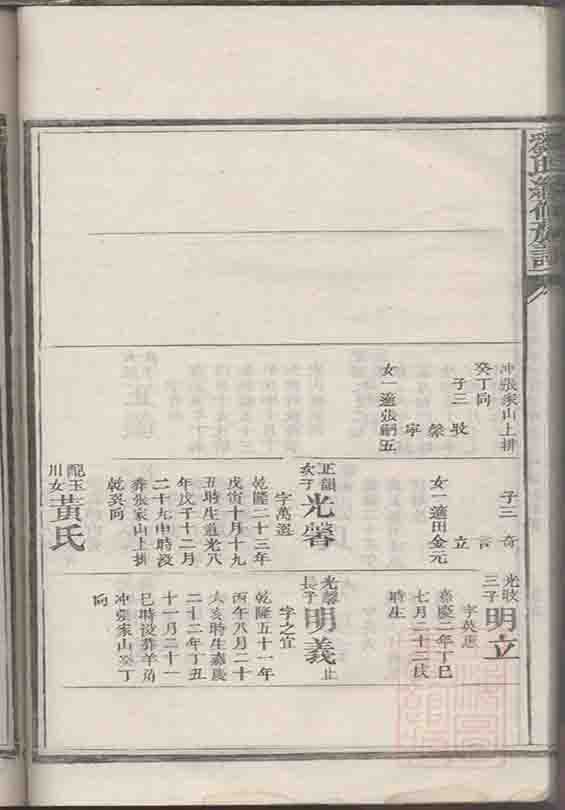 氏續修族譜
冲張家山上排
癸丁向
子三
女一適張嗣五
子三
立
女一適田金元
正韻
次子
光馨
字萬選
乾隆二十三年
戊寅十月十九
丑時生道光八
年戊子十二月
二十九申時没
葬張家山上排
乾巽向
配玉
川女
黃氏
三子
明立
嘉慶二年丁巳
七月二十三戌
時生
光馨
長子
明義
止
字之宜
乾隆五十一年
丙午八月二十
六亥時生嘉慶
二十二年丁丑
十一月二十一
巳時没葬羊角
冲張家山癸丁
向